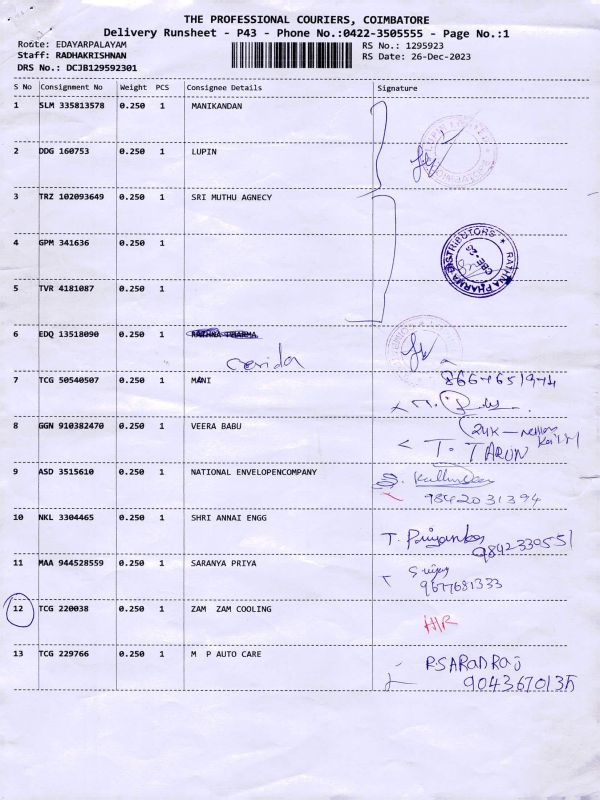 THE PROFESSIONAL COURIERS, COIMBATORE
Delivery Runsheet - P43 - Phone No.:0422-3505555 - Page No.:1
Route: EDAYARPALAYAM RS No.: 1295923
Staff: RADHAKRISHNAN RS Date: 26-Dec-2023
DRS No.: DCJB129592301
S No Consignment No Weight PCS Consignee Details Signature
1 SLM 335813578 0.250 1 MANIKANDAN
2 DDG 160753 0.250 1 LUPIN
3 TRZ 102093649 0.250 1 SRI MUTHU AGNECY
4 GPM 341636 0.250 1
RATHNA PHARMA DISTRIBUTORS
CBE-25
5 TVR 4181087 0.250 1
6 EDQ 13518090 0.250 1 RATHNA PHARMA
7 TCG 50540507 0.250 1 MANI
8 GGN 910382470 0.250 1 VEERA BABU
T. TARUN
9 ASD 3515610 0.250 1 NATIONAL ENVELOPENCOMPANY
9842031394
10 NKL 3304465 0.250 1 SHRI ANNAI ENGG
T. Priyanka
9842330551
11 MAA 944528559 0.250 1 SARANYA PRIYA
9677681333
12 TCG 220038 0.250 1 ZAM ZAM COOLING
H/R
13 TCG 229766 0.250 1 M P AUTO CARE